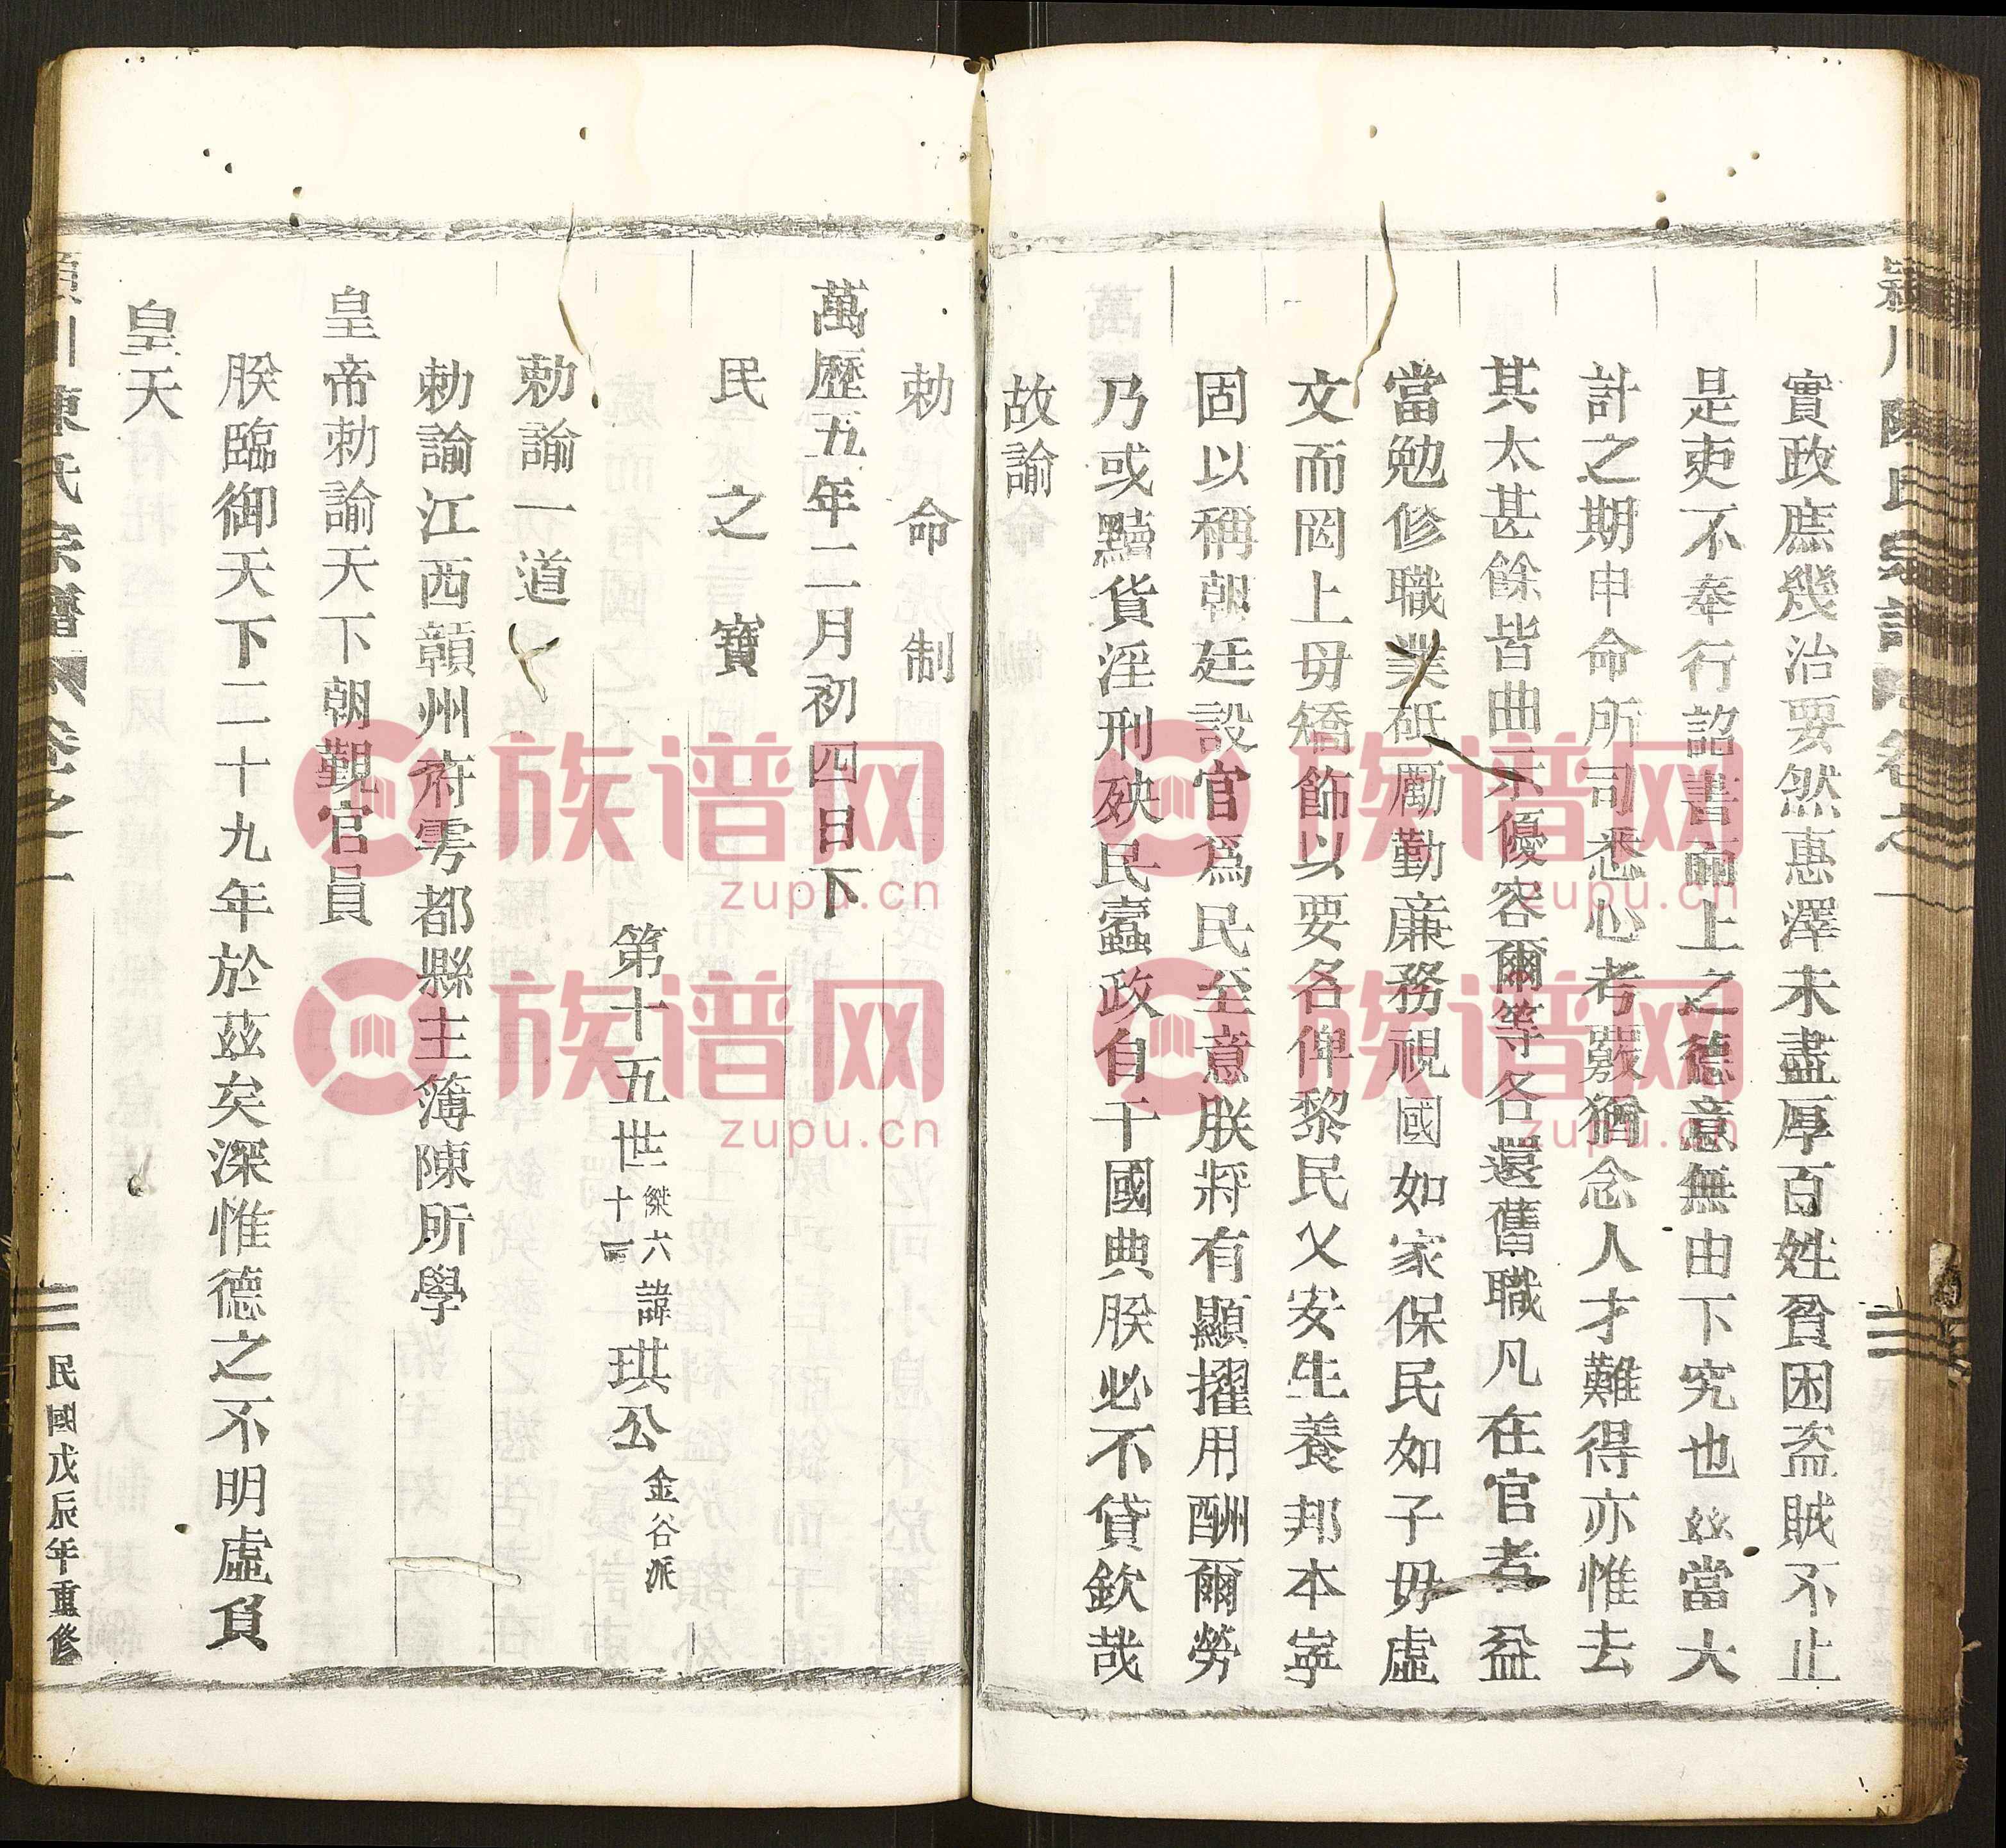 潁川陳氏宗譜 卷之一
實政庶幾治要然惠澤未盡厚百姓貧困盗賊不止
是吏不奉行詔書而上之德意無由下究也玆當大
計之期申命所司悉心考覈猶念人才難得亦惟去
其太甚餘皆曲示優容爾等各還舊職凡在官者益
當勉修職業砥勵勤廉務視國如家保民如子毋虛
文而罔上毋矯飾以要名俾黎民乂安生養邦本寧
固以稱朝廷設官爲民至意朕將有顯擢用酬爾勞
乃或黷貨淫刑殃民蠹政自干國典朕必不貸欽哉
故諭
勅命制
萬歷五年二月初四日下
民之寶
第十五世 傑六 十一 諱琪公 金谷派
勅諭一道
勅諭江西贛州府雩都縣主簿陳所學
皇帝勅諭天下朝觀官員
朕臨御天下二十九年於茲矣深惟德之不明虛負
皇天
潁川陳氏宗譜 卷之一 三 民國戊辰年重修
族谱网
zupu.cn
族谱网
zupu.cn
族谱网
zupu.cn
族谱网
zupu.cn